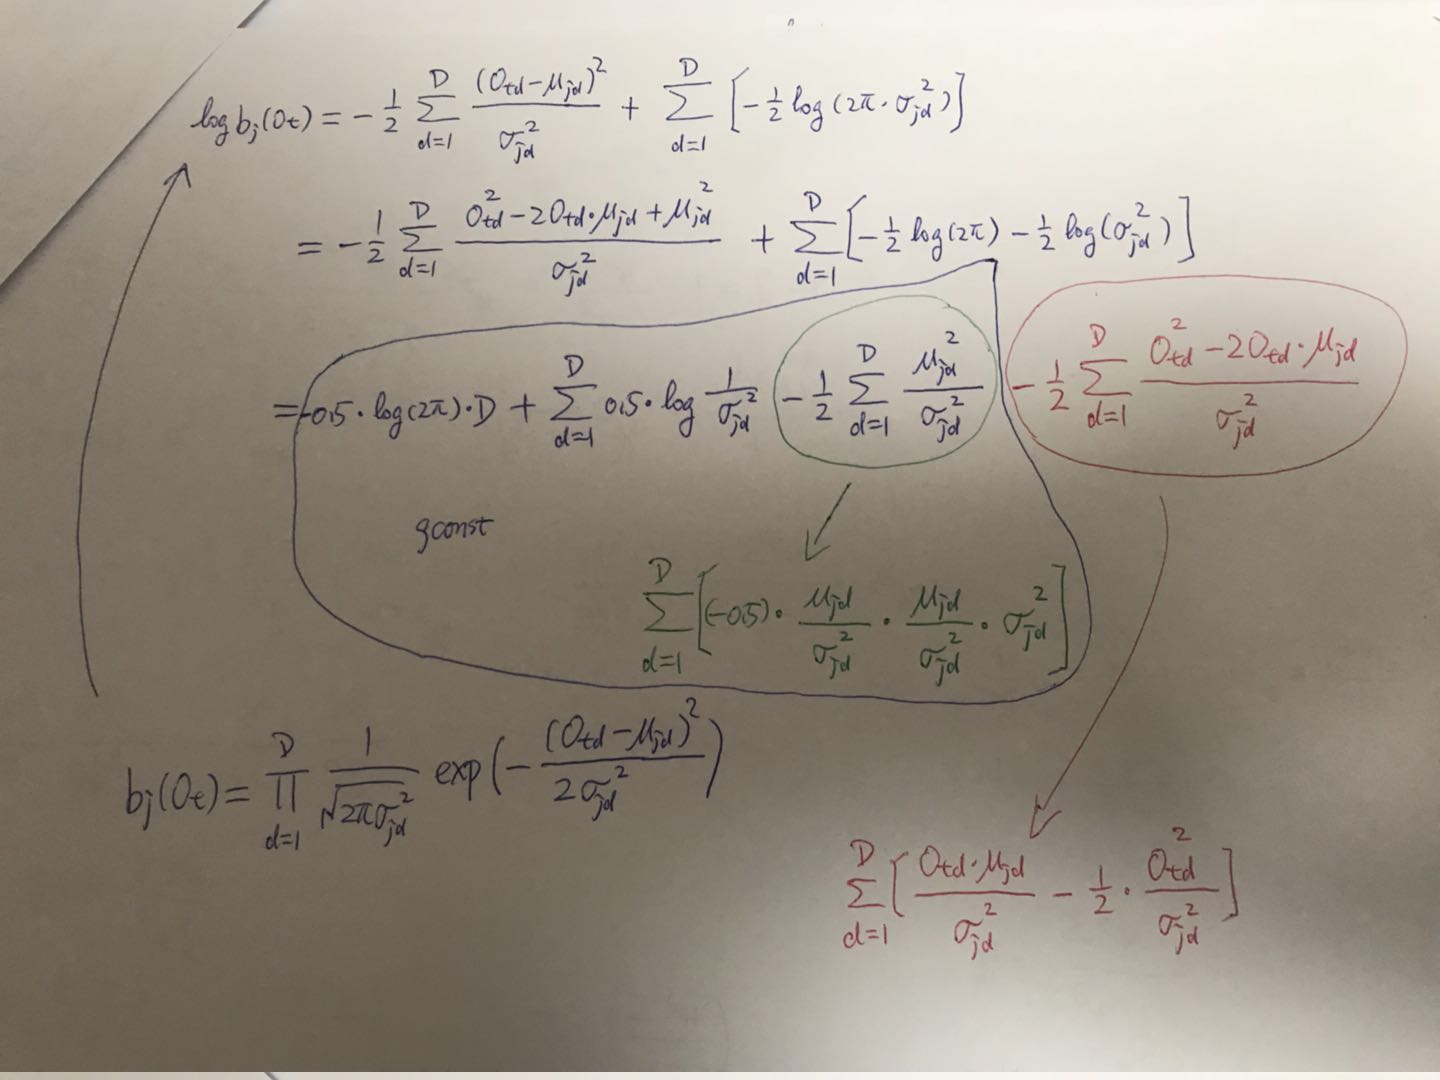 log b_j(O_t) = -\frac{1}{2} \sum_{d=1}^{D} \frac{(O_{td} - μ_{jd})^2}{σ_{jd}^2} + \sum_{d=1}^{D} [-\frac{1}{2} log(2π · σ_{jd}^2)]
= -\frac{1}{2} \sum_{d=1}^{D} \frac{O_{td}^2 - 2O_{td} · μ_{jd} + μ_{jd}^2}{σ_{jd}^2} + \sum_{d=1}^{D} [-\frac{1}{2} log(2π) - \frac{1}{2} log(σ_{jd}^2)]
= -0.5 · log(2π) · D + \sum_{d=1}^{D} 0.5 · log \frac{1}{σ_{jd}^2} - \frac{1}{2} \sum_{d=1}^{D} \frac{μ_{jd}^2}{σ_{jd}^2} - \frac{1}{2} \sum_{d=1}^{D} \frac{O_{td}^2 - 2O_{td} · μ_{jd}}{σ_{jd}^2}
gconst
\sum_{d=1}^{D} [(-0.5) · \frac{μ_{jd}}{σ_{jd}^2} · \frac{μ_{jd}}{σ_{jd}^2} · σ_{jd}^2]
b_j(O_t) = \prod_{d=1}^{D} \frac{1}{\sqrt{2πσ_{jd}^2}} exp(-\frac{(O_{td} - μ_{jd})^2}{2σ_{jd}^2})
\sum_{d=1}^{D} [\frac{O_{td} · μ_{jd}}{σ_{jd}^2} - \frac{1}{2} · \frac{O_{td}^2}{σ_{jd}^2}]